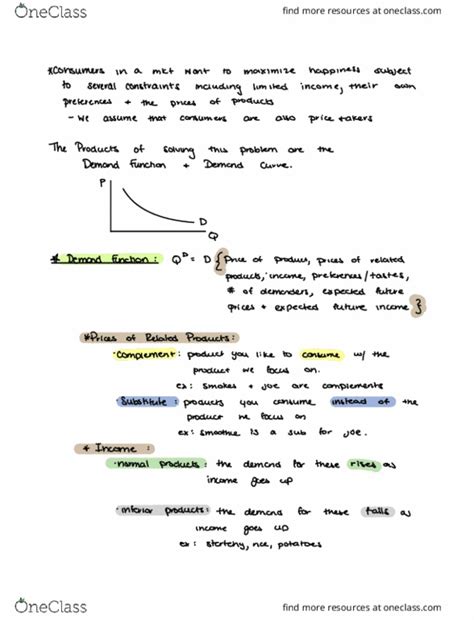 OneClass
find more resources at oneclass.com
*Consumers in a mkt want to maximize happiness subject
to several constraints including limited income, their own
preferences + the prices of products
- we assume that consumers are also price takers
The Products of solving this problem are the
Demand Function + Demand Curve.
P
D
Q
* Demand Function: Q^D = D { price of product, prices of related
products, income, preferences/tastes,
# of demanders, expected future
prices + expected future income }
*Prices of Related Products:
·Complement: product you like to consume w/ the
product we focus on.
ex: smokes + joe are complements
·Substitute: products you consume instead of the
product we focus on
ex: smoothie is a sub for joe.
* Income:
·normal products: the demand for these rises as
income goes up
·inferior products: the demand for these falls as
income goes up
ex: starchy, rice, potatoes
OneClass
find more resources at oneclass.com